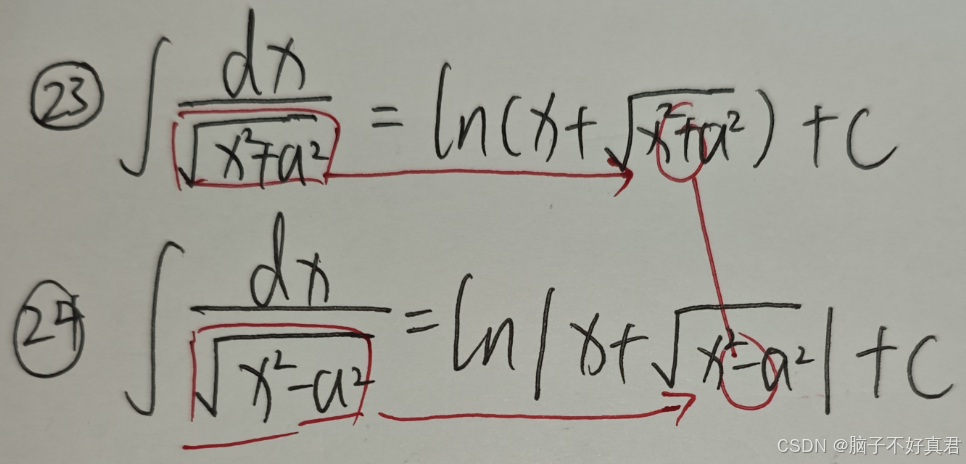 ㉓ ∫ dx/√(x²+a²) = ln(x+√(x²+a²))+C
㉔ ∫ dx/√(x²-a²) = ln|x+√(x²-a²)|+C
CSDN @脑子不好真君